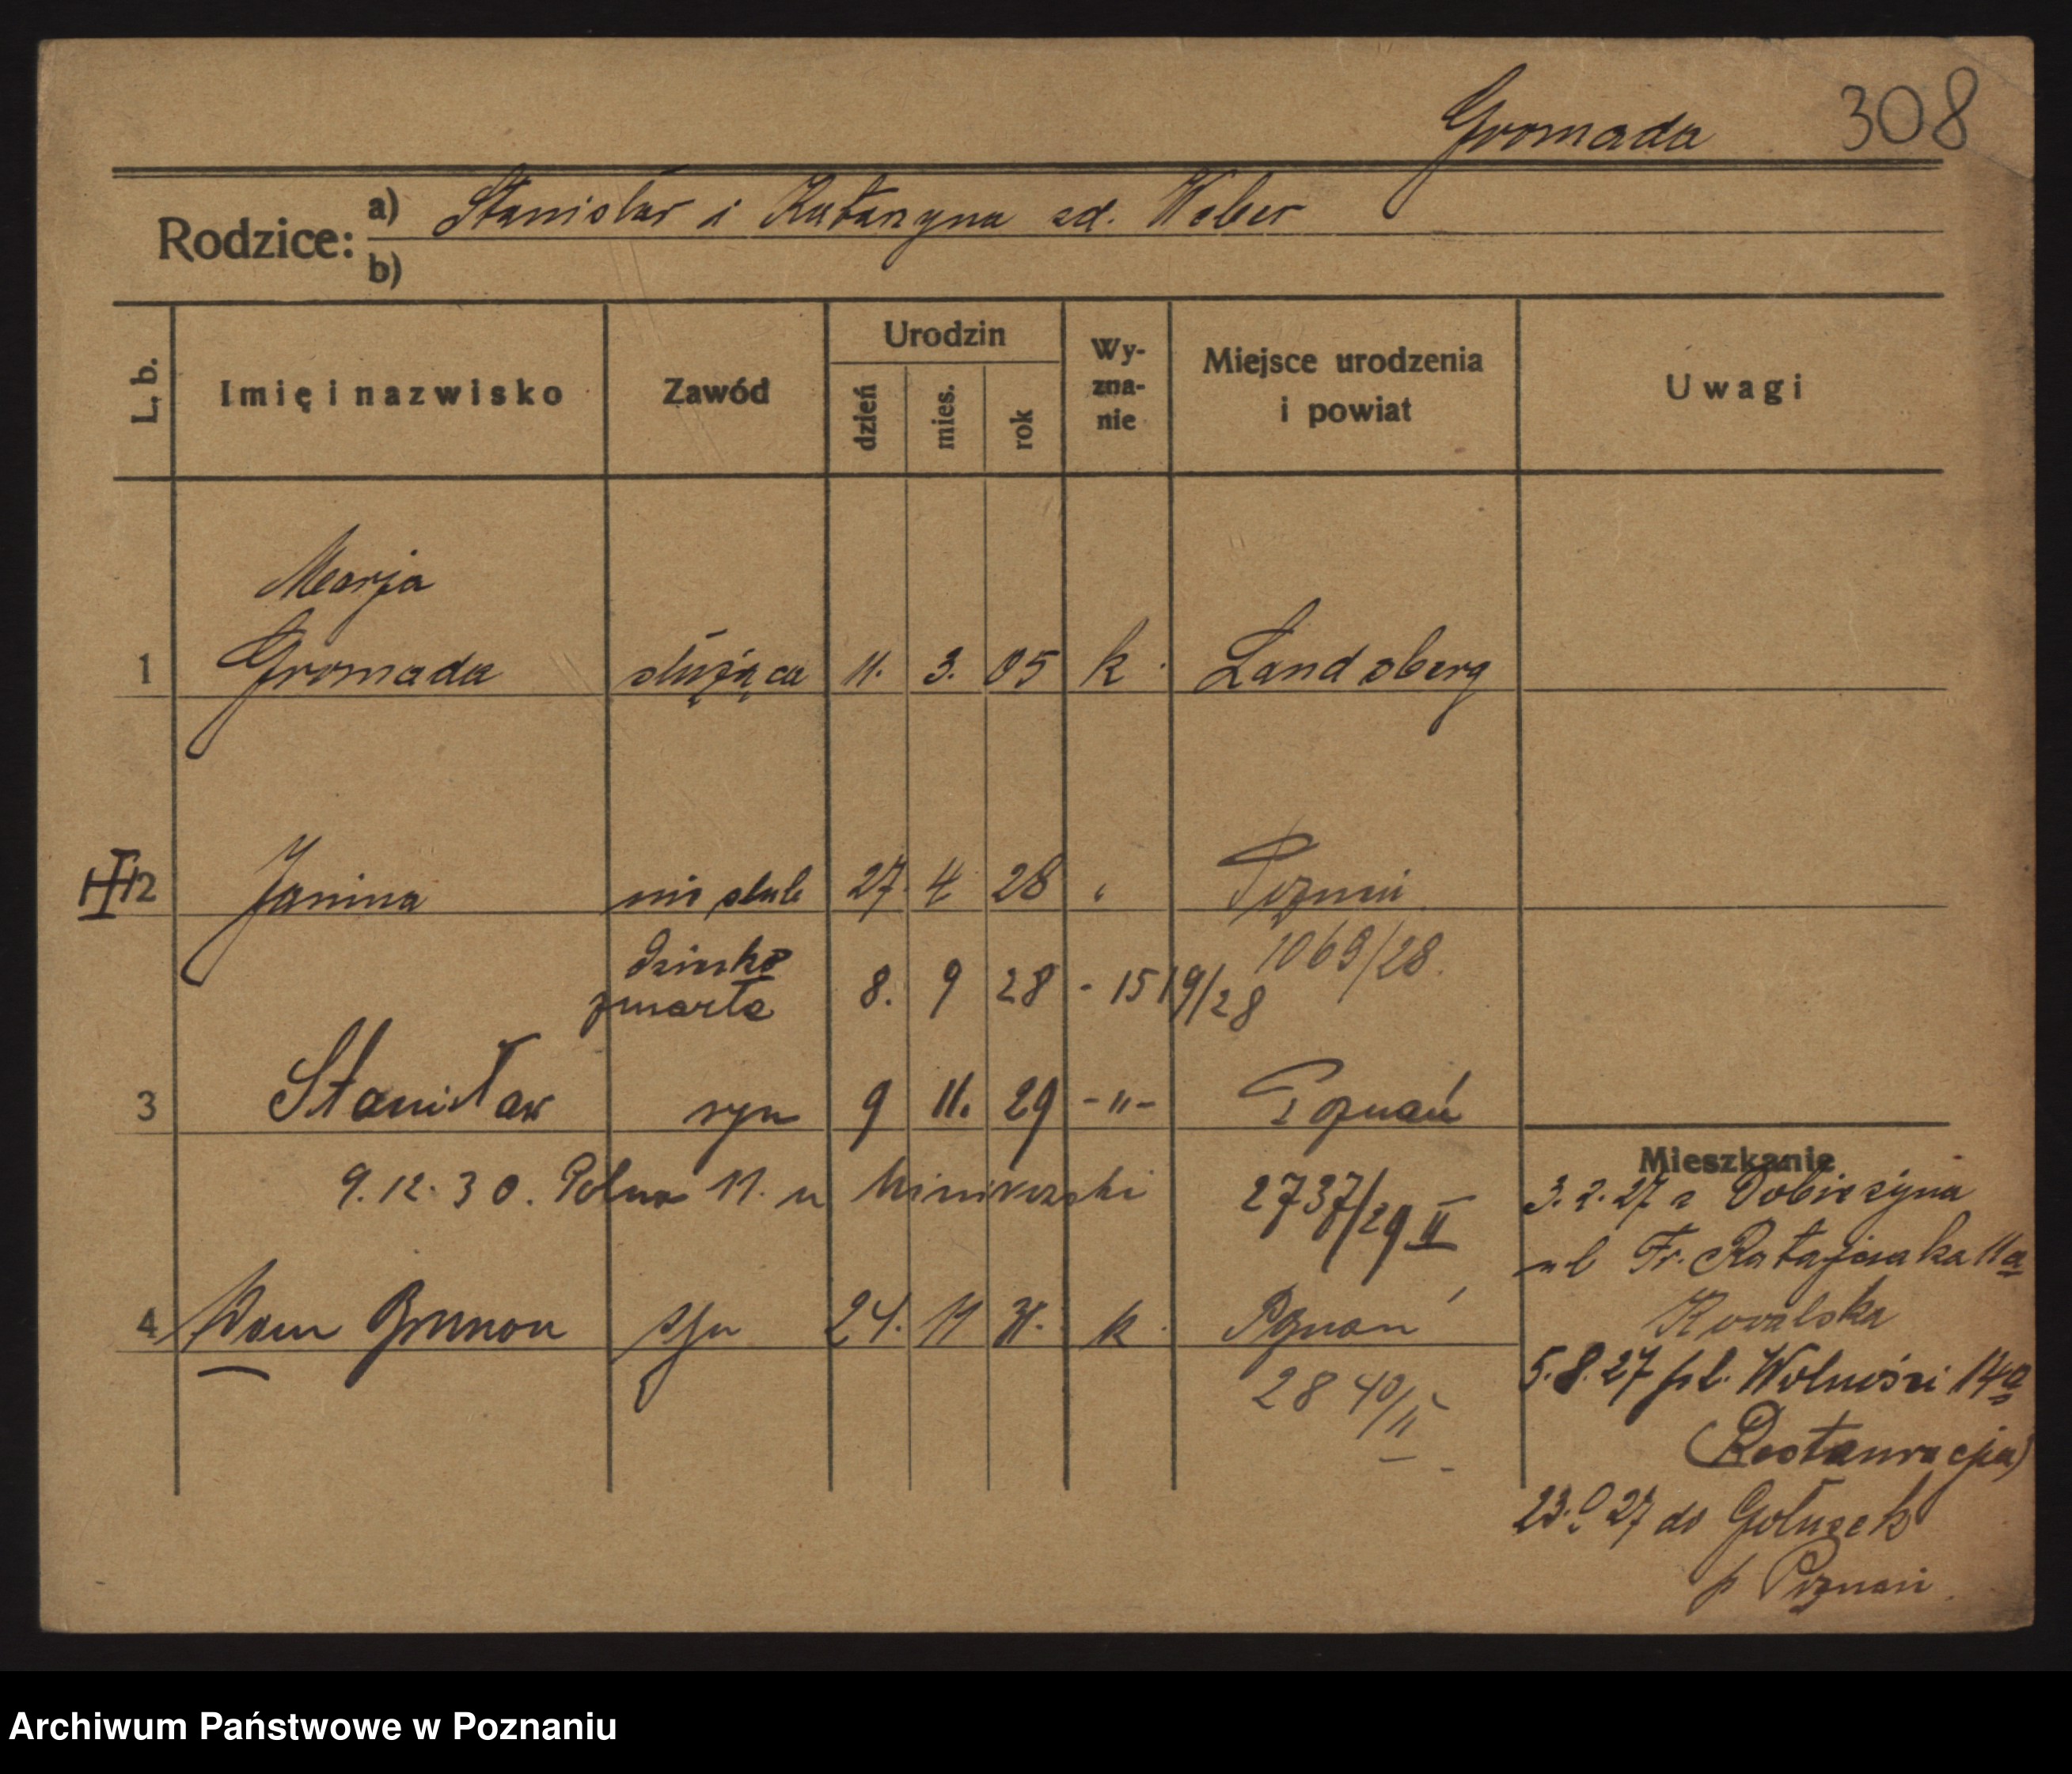 Gromada 308
Rodzice: a) Stanisław i Katarzyna zd. Weber
b)
L. b. Imię i nazwisko Zawód Urodzin Wy-zna-nie Miejsce urodzenia i powiat Uwagi
dzień mies. rok
Marja
1 Gromada służąca 11. 3. 05 k. Landsberg
2 Janina nieślub 27. 4 28 " Poznań
dziecko 1069/28.
zmarło 8. 9 28 - 1519/28
3 Stanisław syn 9 11. 29 -"- Poznań
Mieszkanie
9.12.30. Polna 11. u 2737/29 II
3.2.27 z Dobieżyna
ul Fr. Ratajczaka 11a
4 Adam Brunon syn 24. 11 31. k. Poznań
Kowalska
5.8.27 pl. Wolności 14a
2840/II
(Restauracja)
23. 27 do Gołuzek
p Poznań
Archiwum Państwowe w Poznaniu